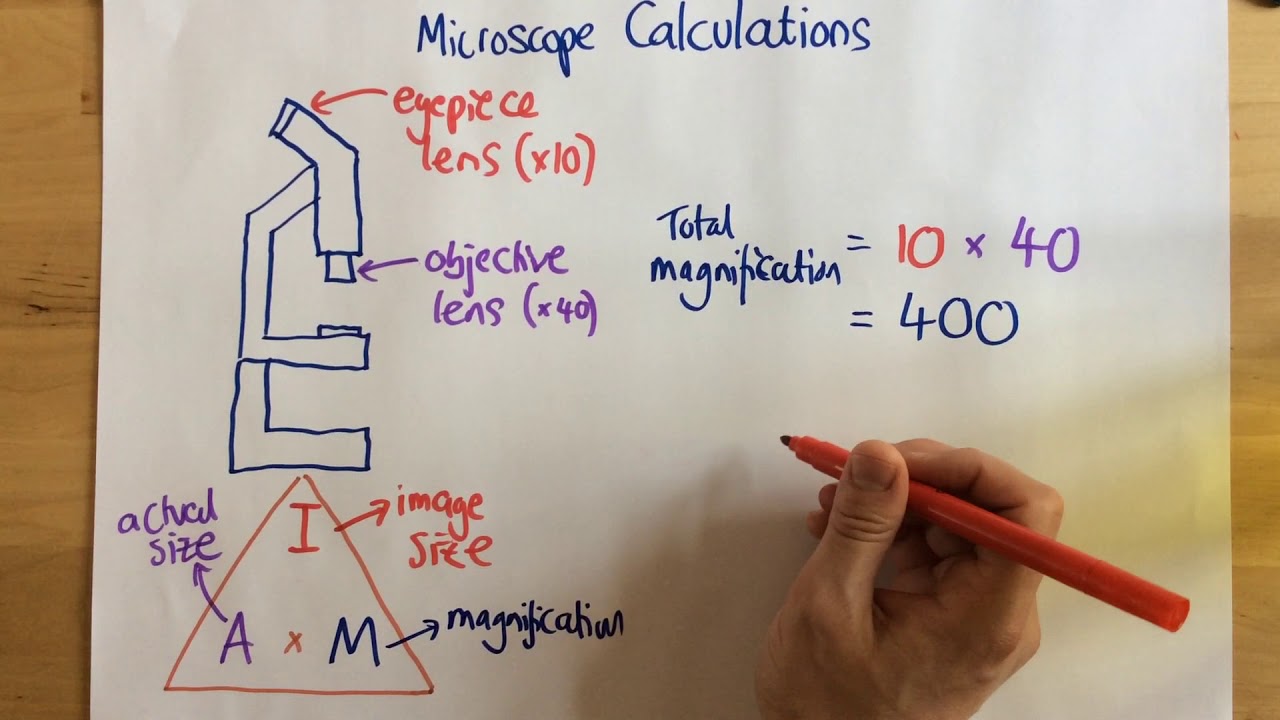 Microscope Calculations
eyepiece
lens (×10)
objective
lens (×40)
Total
magnification = 10 × 40
= 400
actual
size
I
image
size
A × M
magnification